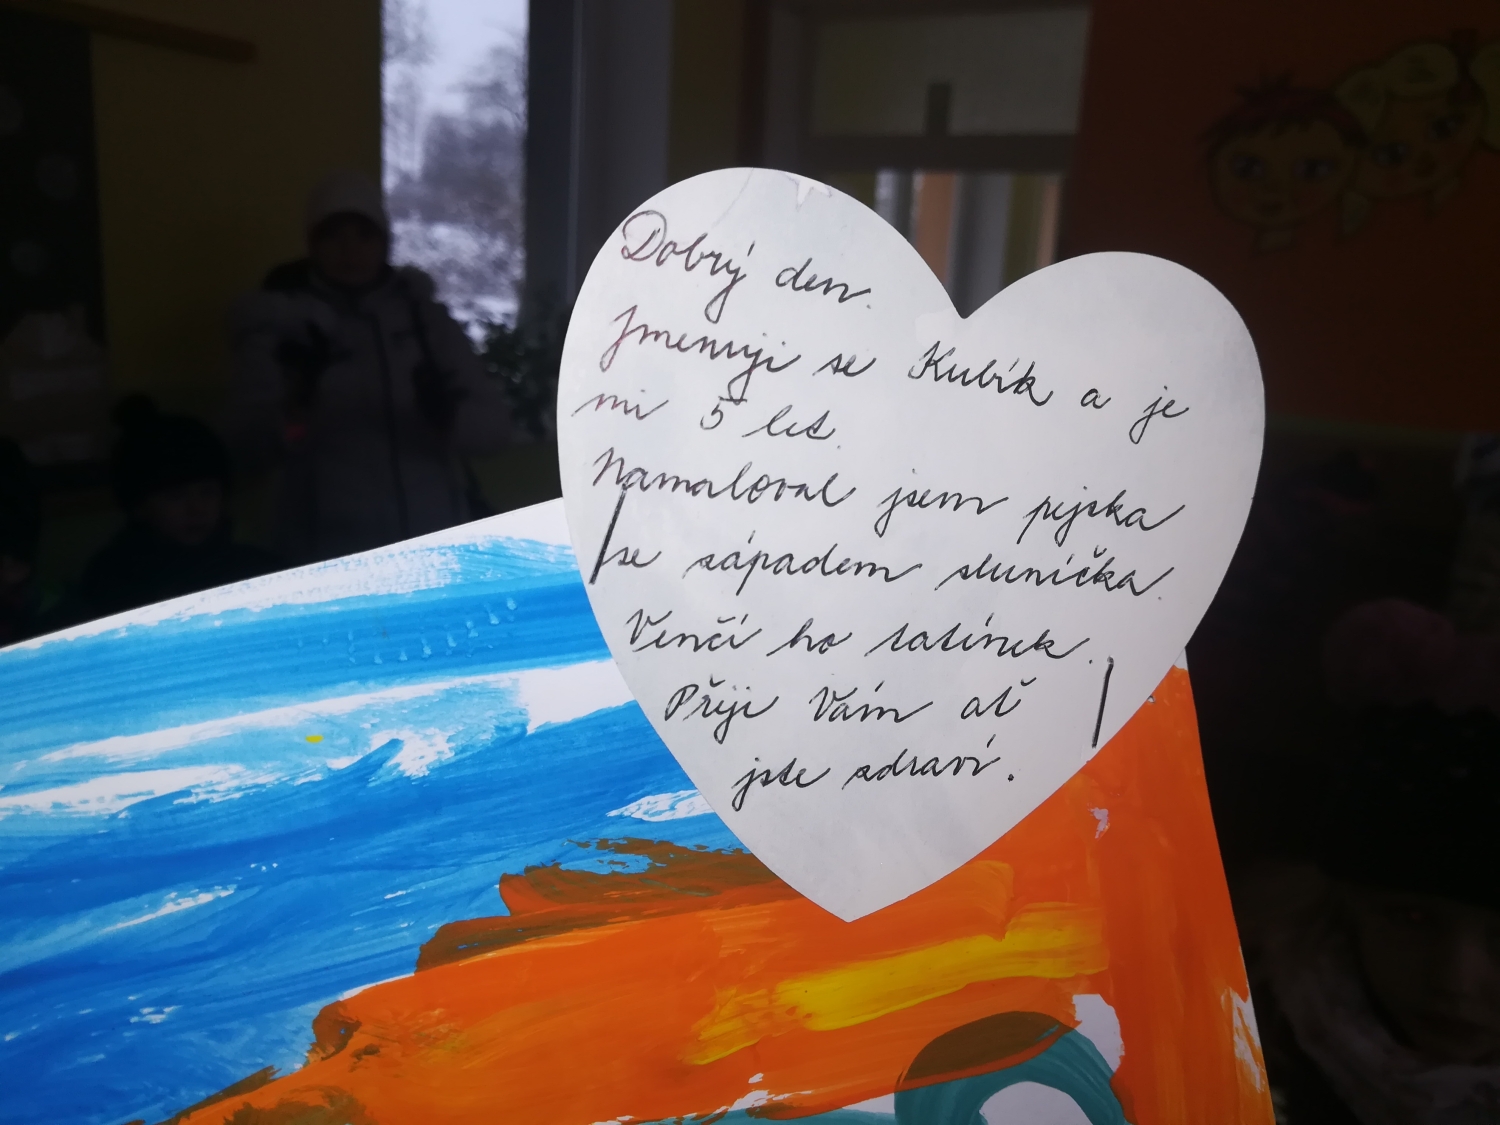 Dobrý den.
Jmenuji se Kubík a je
mi 5 let.
Namaloval jsem pejska
se západem sluníčka.
Venčí ho tatínek.
Přeji Vám ať
jste zdraví.